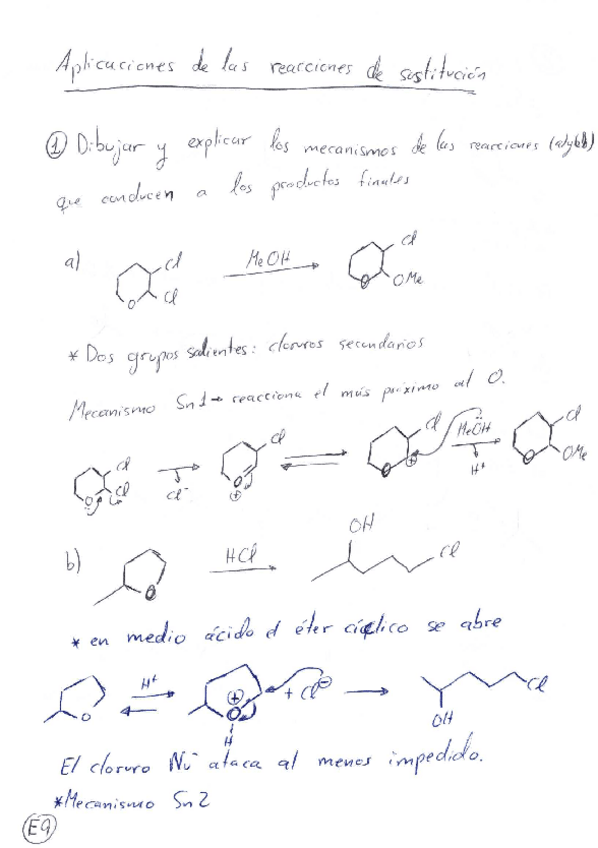 Aplicaciones de las reacciones de sustitución
① Dibujar y explicar los mecanismos de las reacciones (a)y(b)
que conducen a los productos finales
a) Cl Cl O MeOH Cl O OMe
* Dos grupos salientes: cloruros secundarios
Mecanismo Sn1 → reacciona el más próximo al O.
Cl Cl O Cl⁻ Cl O ⊕ Cl O ⊕ MeOH H⁺ Cl O OMe
b) O HCl OH Cl
* en medio ácido el éter cíclico se abre
O H⁺ ⊕ O H + Cl⊖ Cl OH
El cloruro Nu⁻ ataca al menos impedido.
*Mecanismo Sn2
E9